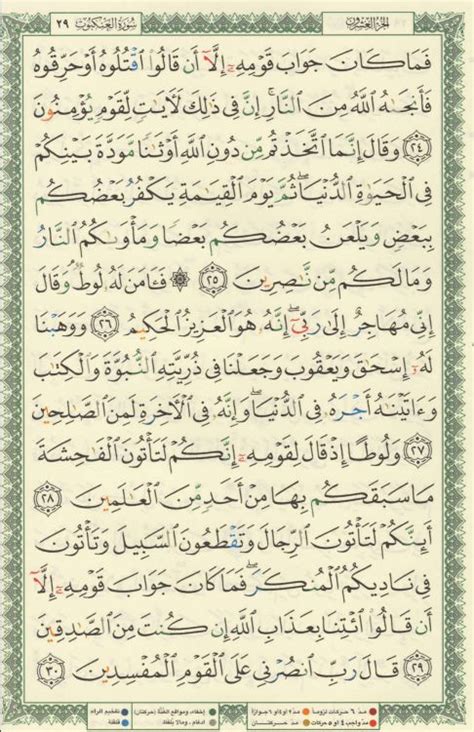 سُورَةُ العَنكَبُوتِ ٢٩ الجُزءُ العِشرُونَ
فَمَا كَانَ جَوَابَ قَوْمِهِۦٓ إِلَّآ أَن قَالُوا۟ ٱقْتُلُوهُ أَوْ حَرِّقُوهُ
فَأَنجَىٰهُ ٱللَّهُ مِنَ ٱلنَّارِ ۚ إِنَّ فِى ذَٰلِكَ لَـَٔايَـٰتٍ لِّقَوْمٍ يُؤْمِنُونَ
٢٤ وَقَالَ إِنَّمَا ٱتَّخَذْتُم مِّن دُونِ ٱللَّهِ أَوْثَـٰنًا مَّوَدَّةَ بَيْنِكُمْ
فِى ٱلْحَيَوٰةِ ٱلدُّنْيَا ۖ ثُمَّ يَوْمَ ٱلْقِيَـٰمَةِ يَكْفُرُ بَعْضُكُم
بِبَعْضٍ وَيَلْعَنُ بَعْضُكُم بَعْضًا وَمَأْوَىٰكُمُ ٱلنَّارُ
وَمَا لَكُم مِّن نَّـٰصِرِينَ ٢٥ ۞ فَـَٔامَنَ لَهُۥ لُوطٌ ۘ وَقَالَ
إِنِّى مُهَاجِرٌ إِلَىٰ رَبِّىٓ ۖ إِنَّهُۥ هُوَ ٱلْعَزِيزُ ٱلْحَكِيمُ ٢٦ وَوَهَبْنَا
لَهُۥٓ إِسْحَـٰقَ وَيَعْقُوبَ وَجَعَلْنَا فِى ذُرِّيَّتِهِ ٱلنُّبُوَّةَ وَٱلْكِتَـٰبَ
وَءَاتَيْنَـٰهُ أَجْرَهُۥ فِى ٱلدُّنْيَا ۖ وَإِنَّهُۥ فِى ٱلْـَٔاخِرَةِ لَمِنَ ٱلصَّـٰلِحِينَ
٢٧ وَلُوطًا إِذْ قَالَ لِقَوْمِهِۦٓ إِنَّكُمْ لَتَأْتُونَ ٱلْفَـٰحِشَةَ
مَا سَبَقَكُم بِهَا مِنْ أَحَدٍ مِّنَ ٱلْعَـٰلَمِينَ ٢٨
أَئِنَّكُمْ لَتَأْتُونَ ٱلرِّجَالَ وَتَقْطَعُونَ ٱلسَّبِيلَ وَتَأْتُونَ
فِى نَادِيكُمُ ٱلْمُنكَرَ ۖ فَمَا كَانَ جَوَابَ قَوْمِهِۦٓ إِلَّآ
أَن قَالُوا۟ ٱئْتِنَا بِعَذَابِ ٱللَّهِ إِن كُنتَ مِنَ ٱلصَّـٰدِقِينَ
٢٩ قَالَ رَبِّ ٱنصُرْنِى عَلَى ٱلْقَوْمِ ٱلْمُفْسِدِينَ ٣٠
مدّ ٦ حركات لزوماً مدّ ٢ او ٤ او ٦ جوازاً إخفاء، ومواقع الغُنَّة (حركتان) تفخيم الراء
مدّ واجب ٤ او ٥ حركات مدّ حركتان ادغام، ومالا يُلفظ قلقلة